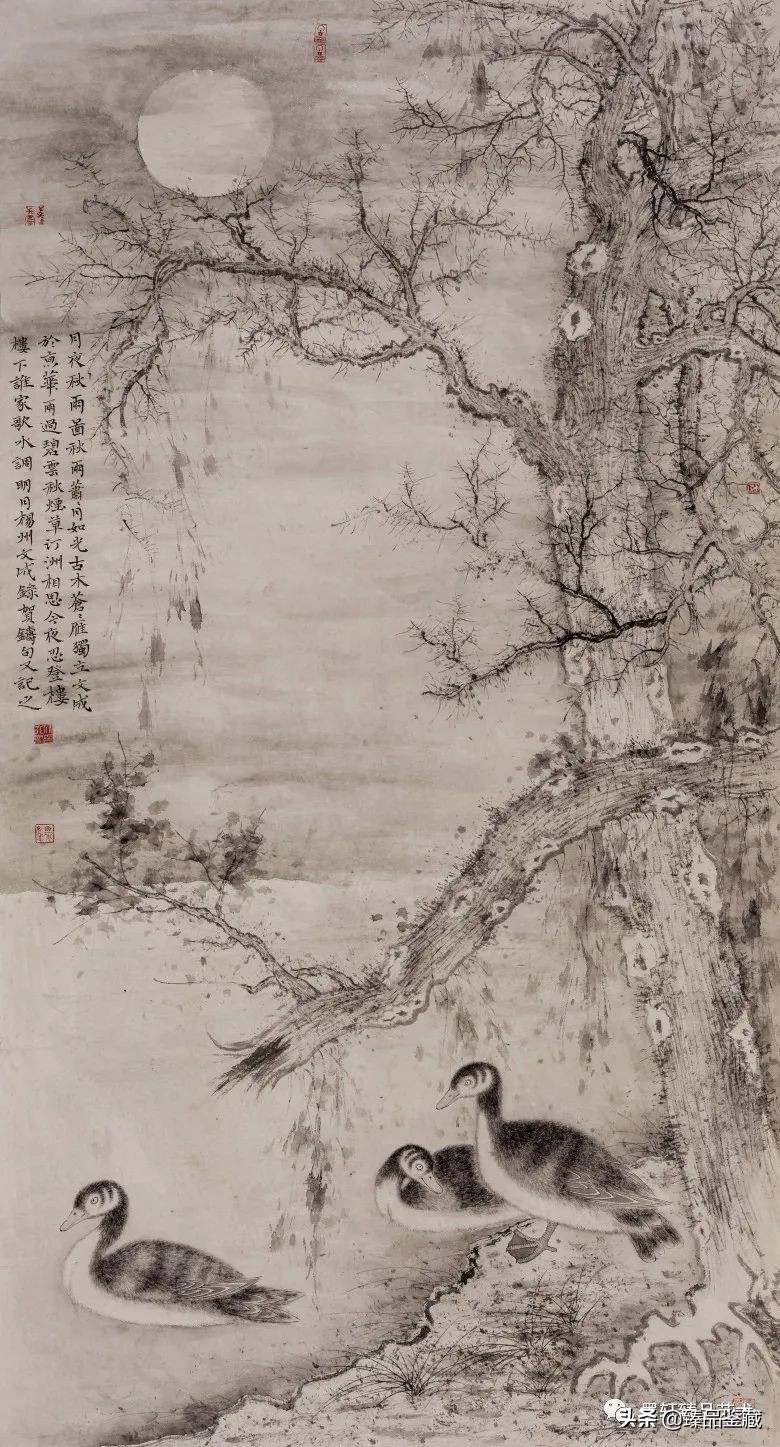 月夜秋雨啚秋雨蕭〻月如光古木蒼〻雁獨立文成
於京華雨過碧雲秋煙草汀洲相思今夜忍登樓
樓下誰家歌水調明月楊州文成錄賀鑄句又記之
墨轩臻品艺术
头条@臻品鉴藏